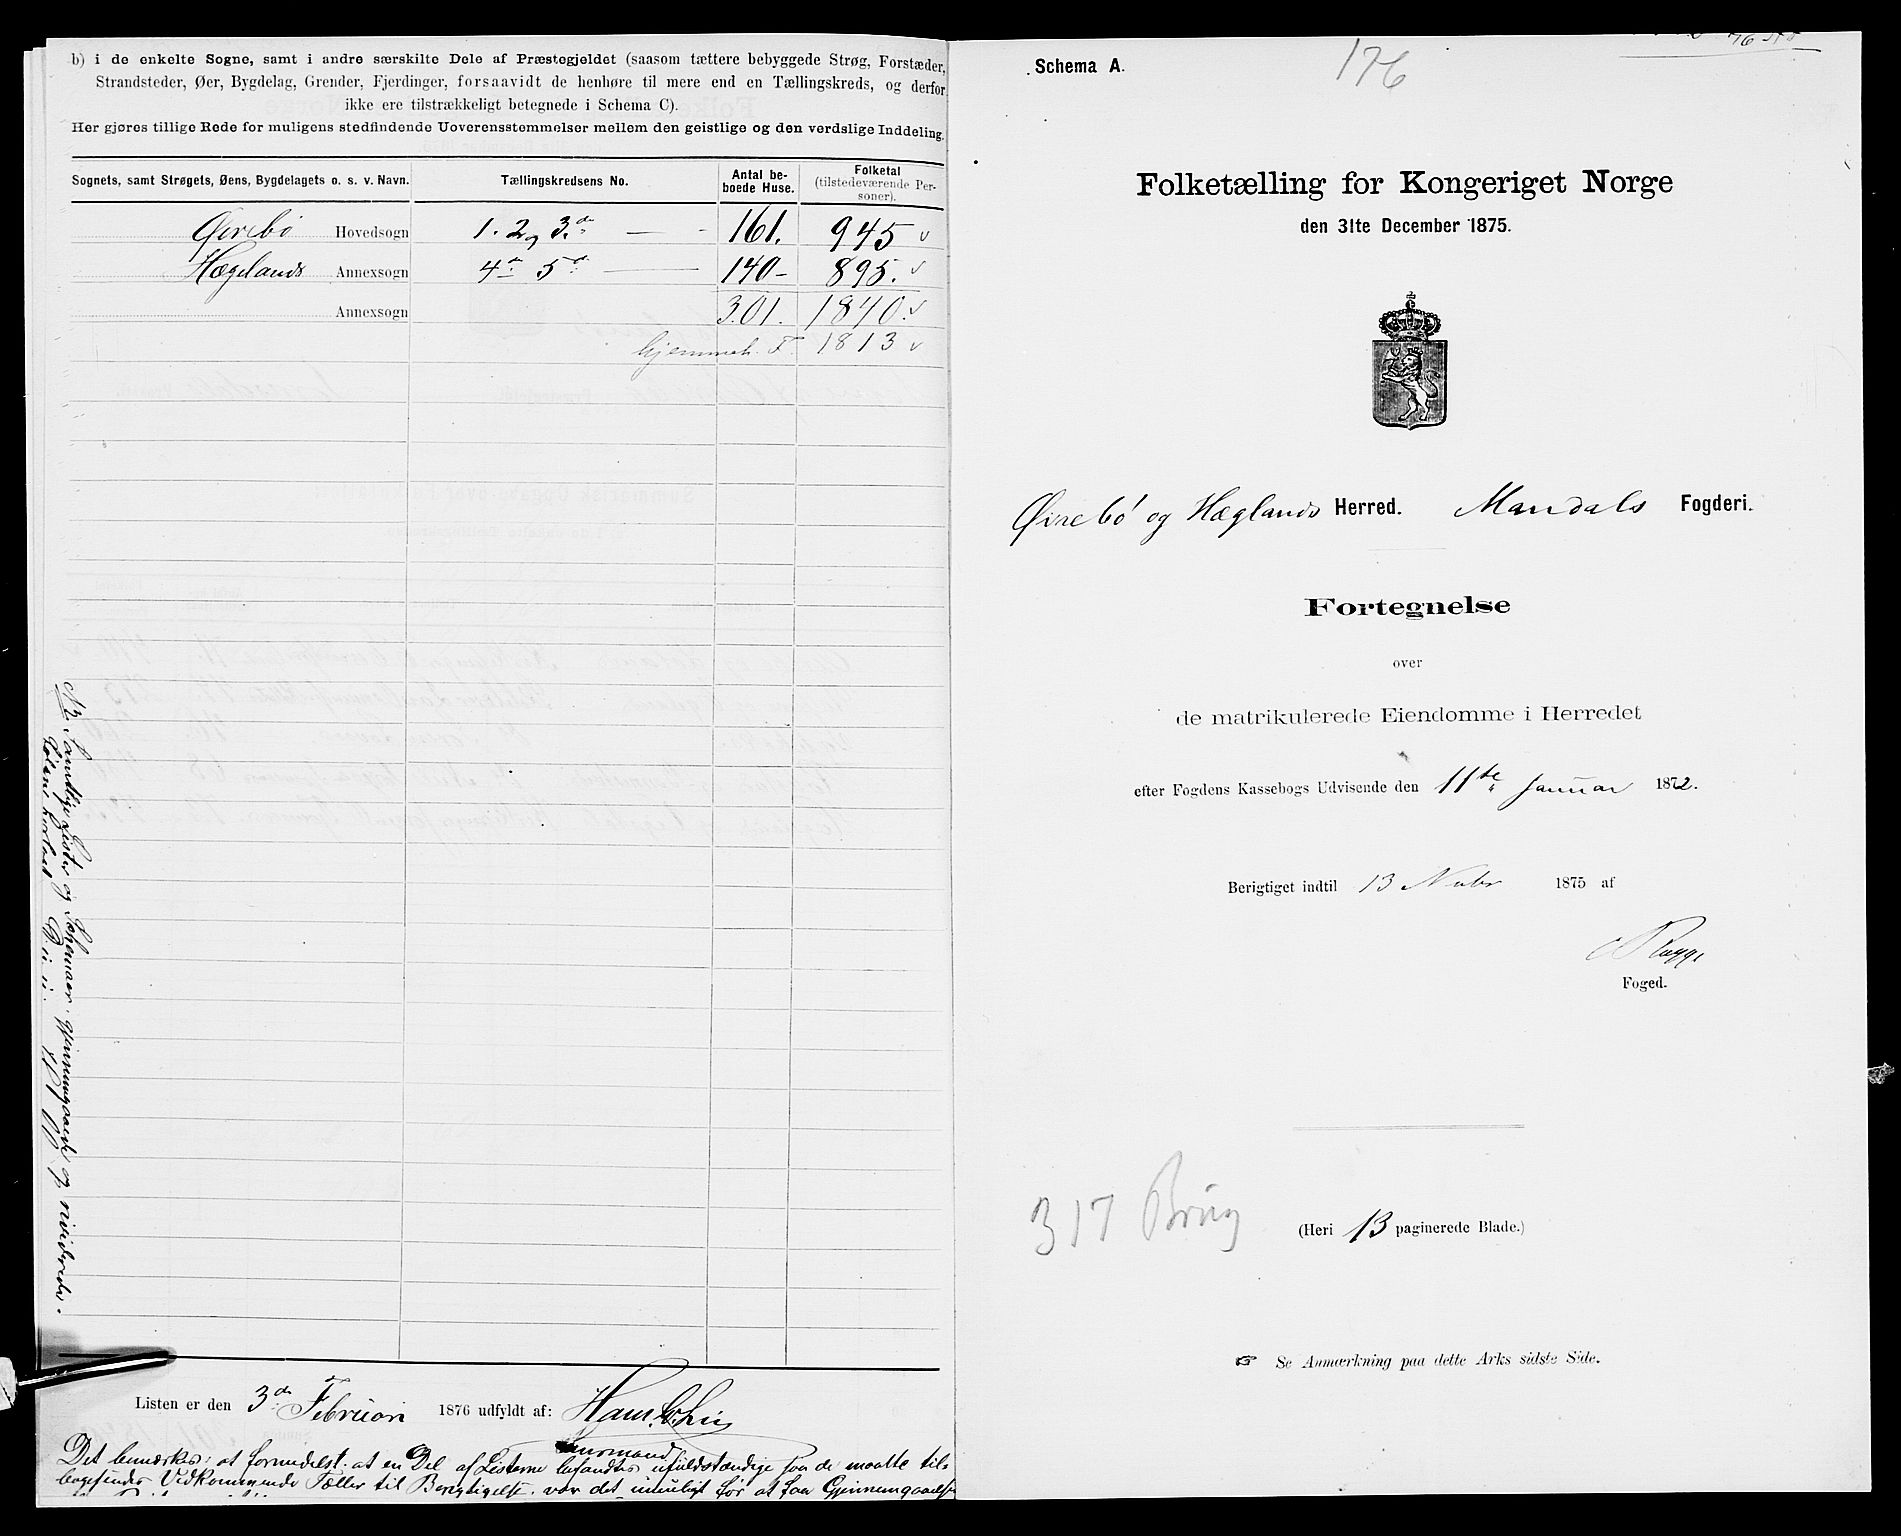 b) i de enkelte Sogne, samt i andre særskilte Dele af Præstegjeldet (saasom tættere bebyggede Strøg, Forstæder,
Strandsteder, Øer, Bygdelag, Grender, Fjerdinger, forsaavidt de henhøre til mere end en Tællingskreds, og derfor
ikke ere tilstrækkeligt betegnede i Schema C).
Her gjøres tillige Rede for muligens stedfindende Uoverensstemmelser mellem den geistlige og den verdslige Inddeling.
Sognets, samt Strøgets, Øens, Bygdelagets o. s. v. Navn. Tællingskredsens No. Antal beboede Huse. Folketal (tilstedeværende Personer).
Øvrebø Hovedsogn 1. 2 og 3die 161. 945 v
Hægelands Annexsogn 4de 5te 140 - 895. v
Annexsogn 301. 1840. v
hjemmeh. F. 1813 v
NB Samtlige Lister og Schemaer gjennemgaaede og reviderede.
Listen er den 3die Februari 1876 udfyldt af:
Lensmand
Det bemærkes: at formedelst at en Del af Listerne befandtes ufuldstændige saa de maatte til-
bagesendes Vedkommende Tæller til Berigtigelse, var det umuligt før at faa Gjennemgaaelse
Schema A.
176
Folketælling for Kongeriget Norge
den 31te December 1875.
Øvrebø og Hæglands Herred. Mandals Fogderi.
Fortegnelse
over
de matrikulerede Eiendomme i Herredet
efter Fogdens Kassebogs Udvisende den 11te Januar 1872.
Berigtiget indtil 13 Novbr 1875 af
Foged.
317 Brug
(Heri 13 paginerede Blade.)
☞ Se Anmærkning paa dette Arks sidste Side.